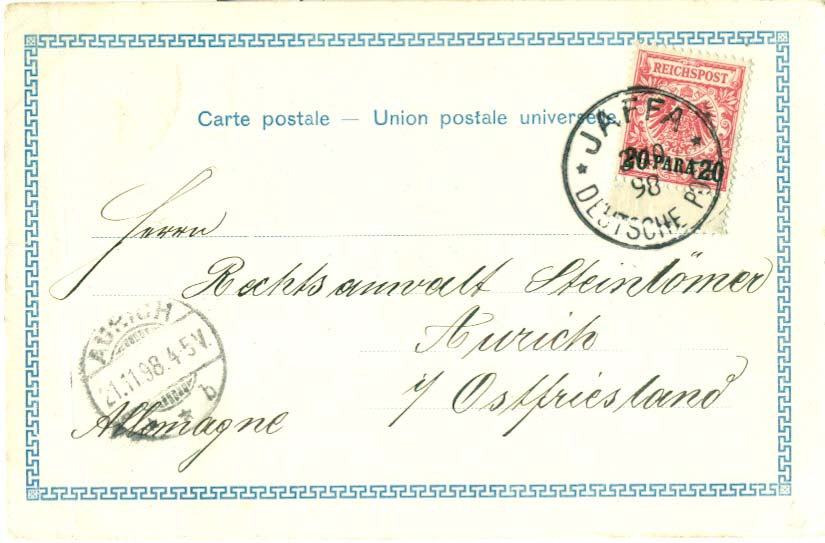 REICHSPOST
Carte postale — Union postale universelle
JAFFA
20 PARA 20
98
DEUTSCHE
Herrn
Rechtsanwalt Steinlömer
Aurich
i/ Ostfriesland
Allemagne
AURICH
21.11.98.4-5V.
* b